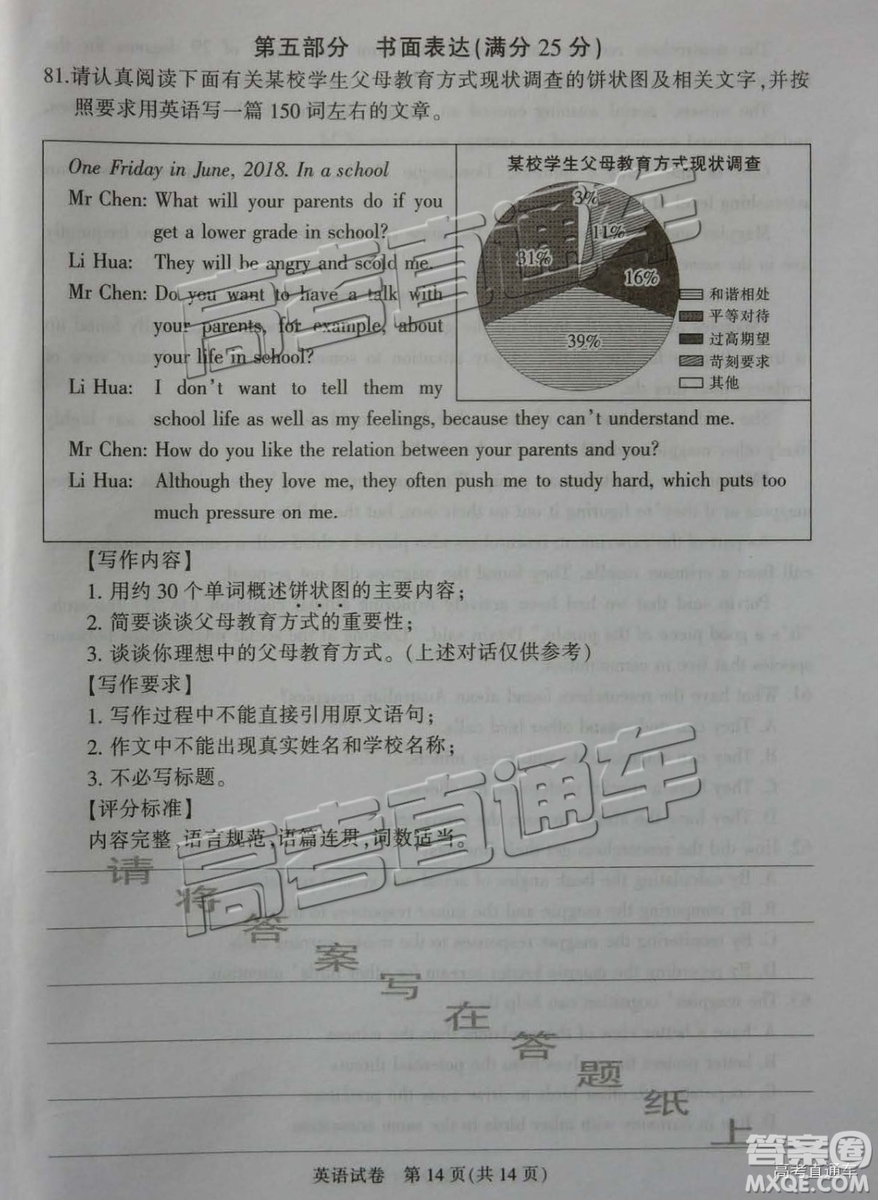 第五部分 书面表达(满分25分)
81.请认真阅读下面有关某校学生父母教育方式现状调查的饼状图及相关文字,并按
照要求用英语写一篇150词左右的文章。
One Friday in June, 2018. In a school
Mr Chen: What will your parents do if you
get a lower grade in school?
Li Hua: They will be angry and scold me.
Mr Chen: Do you want to have a talk with
your parents, for example, about
your life in school?
Li Hua: I don't want to tell them my
school life as well as my feelings, because they can't understand me.
Mr Chen: How do you like the relation between your parents and you?
Li Hua: Although they love me, they often push me to study hard, which puts too
much pressure on me.
某校学生父母教育方式现状调查
3%
11%
31%
16%
39%
和谐相处
平等对待
过高期望
苛刻要求
其他
【写作内容】
1. 用约30个单词概述饼状图的主要内容;
2. 简要谈谈父母教育方式的重要性;
3. 谈谈你理想中的父母教育方式。(上述对话仅供参考)
【写作要求】
1. 写作过程中不能直接引用原文语句;
2. 作文中不能出现真实姓名和学校名称;
3. 不必写标题。
【评分标准】
内容完整,语言规范,语篇连贯,词数适当。
请将答案写在答题纸上
英语试卷 第14页(共14页)
高考直通车
高考直通车
答案圈
高考直通车
MXQE.COM